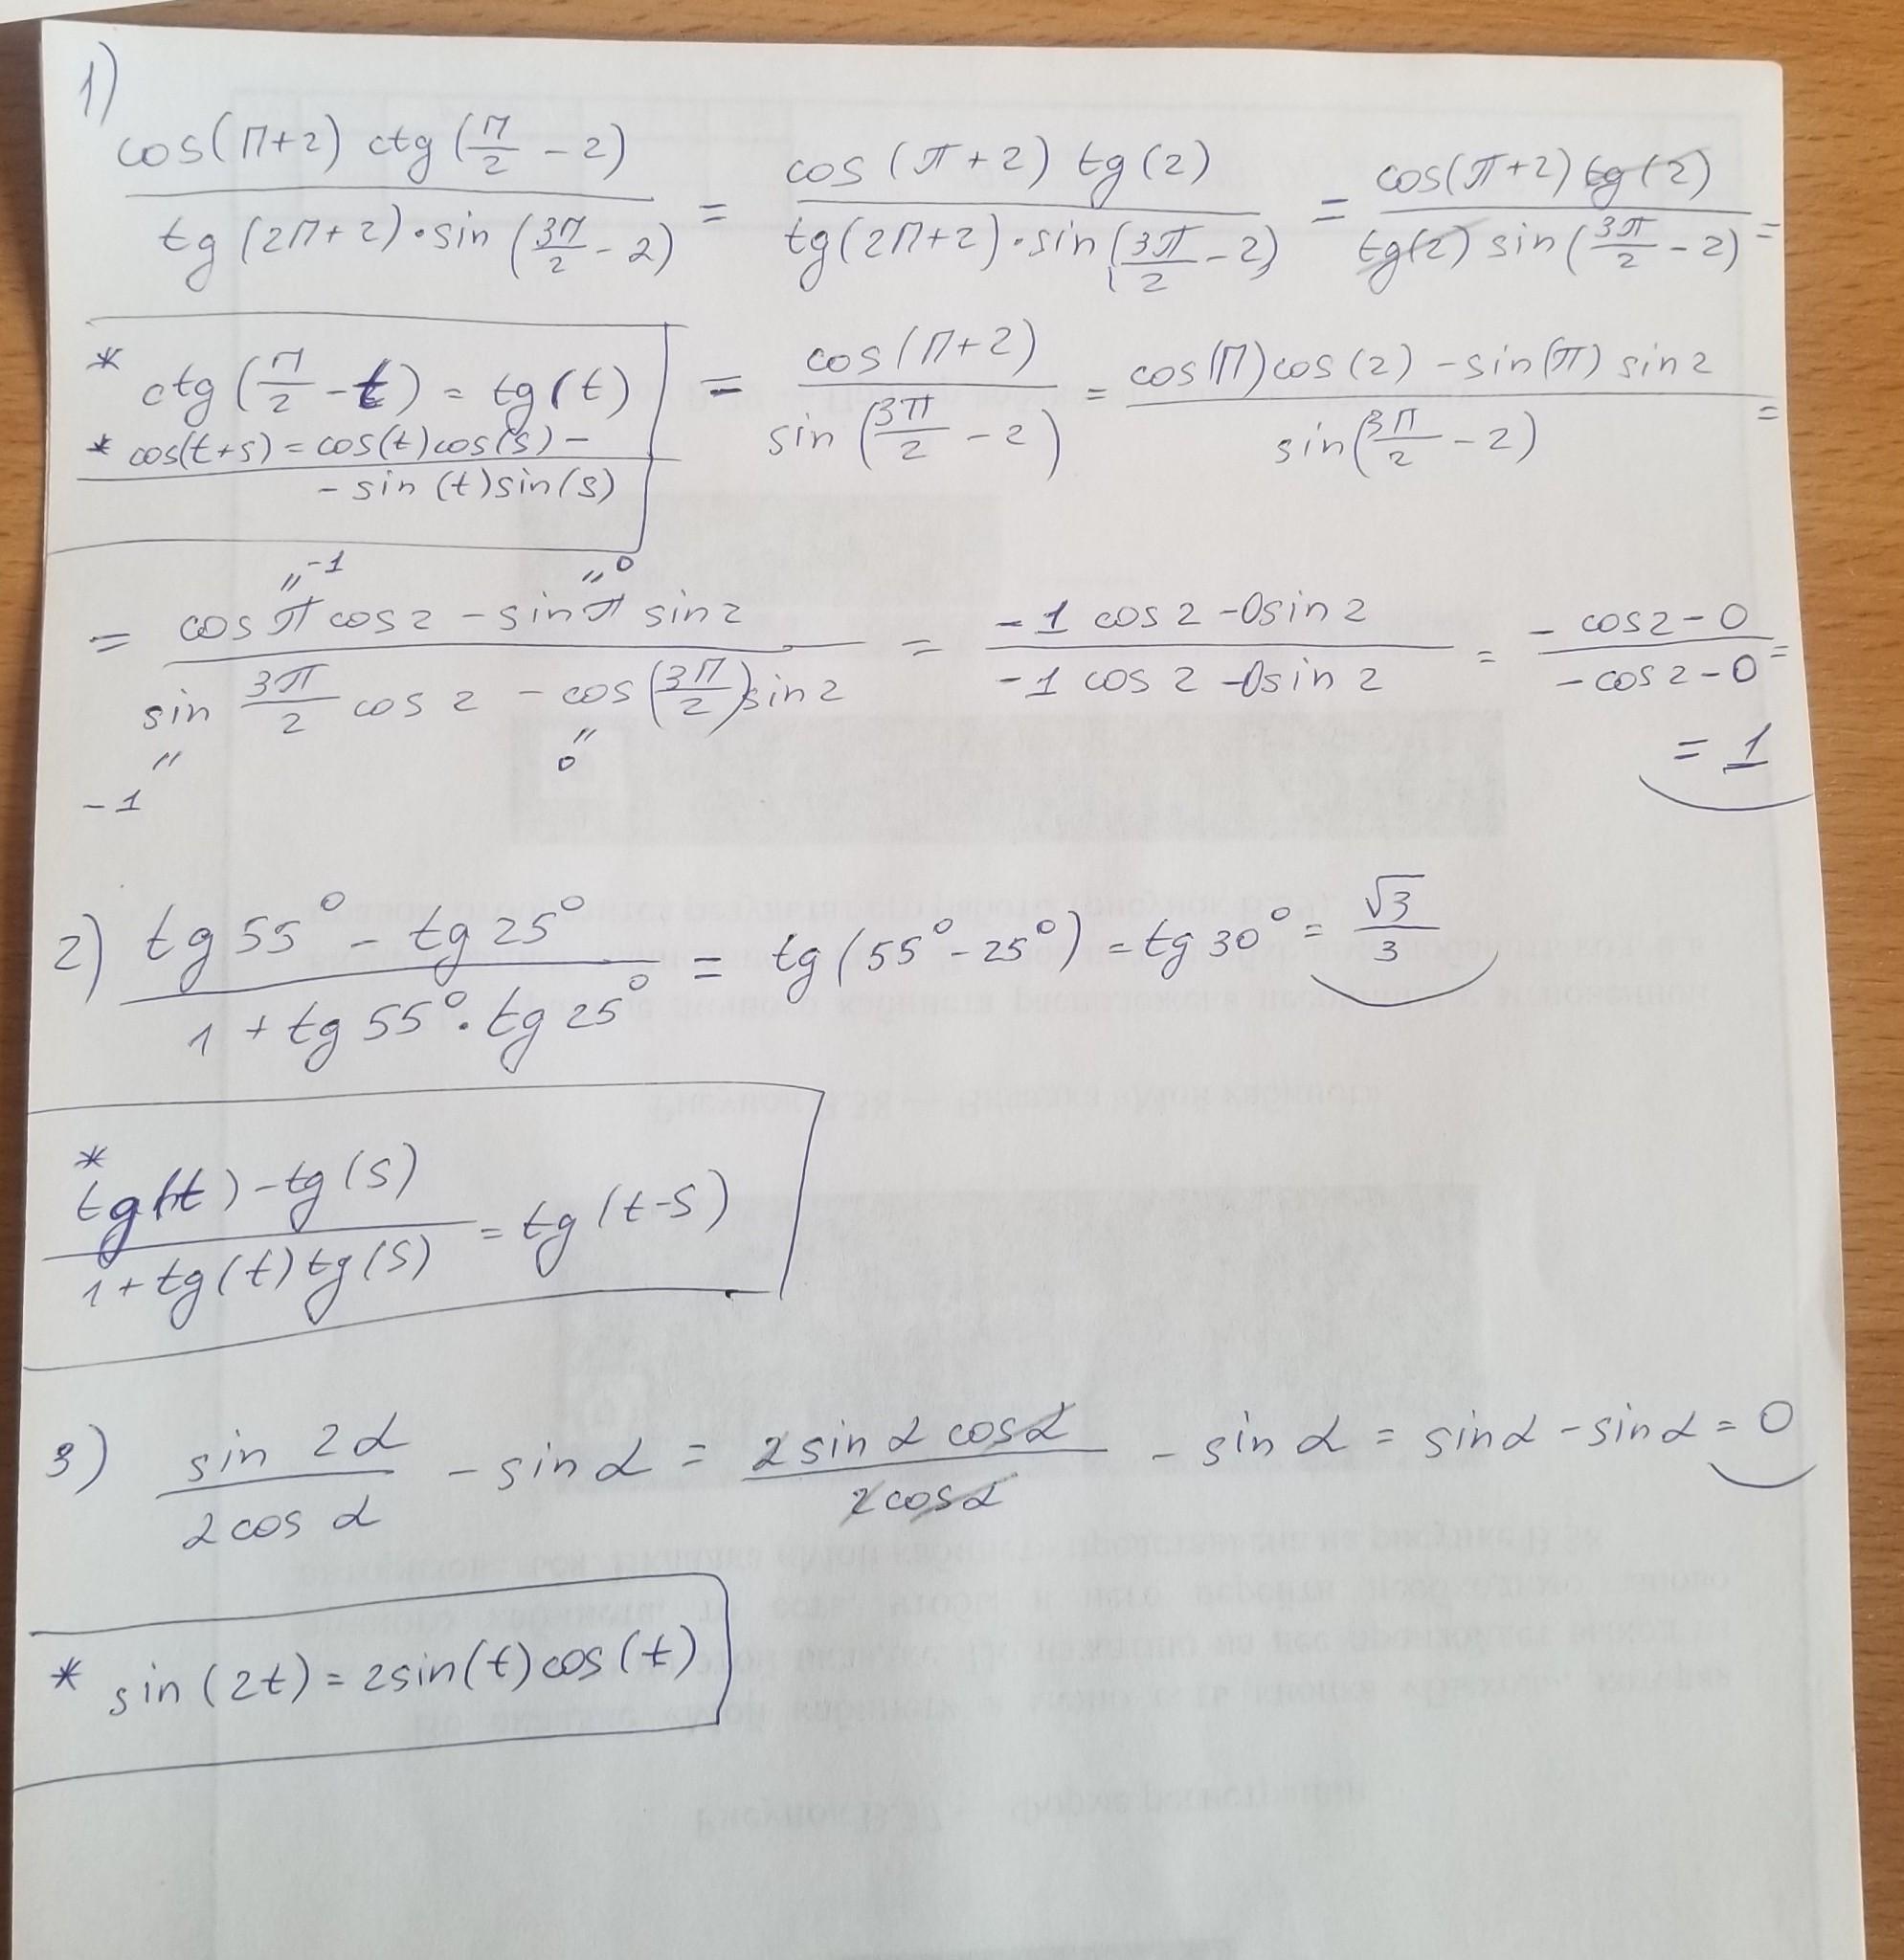 1)
cos(П+2) ctg(П/2 - 2) / tg(2П+2)·sin(3П/2 - 2) = cos(π+2) tg(2) / tg(2П+2)·sin(3π/2 - 2) = cos(π+2) tg(2) / tg(2) sin(3π/2 - 2) =
* ctg(П/2 - t) = tg(t)
* cos(t+s) = cos(t)cos(s) -
- sin(t)sin(s)
= cos(П+2) / sin(3π/2 - 2) = cos(П)cos(2) - sin(π) sin2 / sin(3П/2 - 2) =
"-1 "0
= cosπ cos2 - sinπ sin2 / sin 3π/2 cos2 - cos(3П/2)sin2 = -1 cos2 - 0sin2 / -1 cos2 - 0sin2 = - cos2 - 0 / - cos2 - 0 =
" "
-1 0
= 1
2) tg55° - tg25° / 1 + tg55°·tg25° = tg(55° - 25°) = tg30° = √3/3
*
tg(t) - tg(s) / 1 + tg(t) tg(s) = tg(t-s)
3) sin 2α / 2cos α - sin α = 2 sin α cos α / 2 cos α - sin α = sin α - sin α = 0
* sin(2t) = 2sin(t)cos(t)